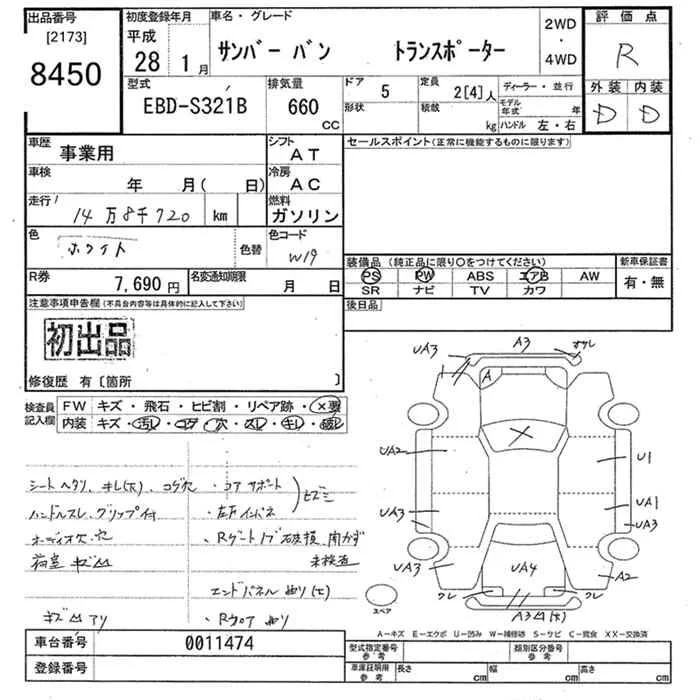 出品番号
[2173]
8450
初度登録年月
平成
28 1 月
車名・グレード
サンバー バン トランスポーター
2WD
・
4WD
評価点
R
外装 内装
D D
型式
EBD-S321B
排気量
660
CC
ドア
5
形状
定員
2[4]人
積載
kg
ディーラー・並行
モデル年式 年
ハンドル 左・右
車歴 事業用
シフト
AT
車検
年 月( 日)
冷房
AC
走行
14 万 8千 720 km
燃料
ガソリン
色
ホワイト
色替
色コード
W19
R券
7,690 円
名変通知期限
月 日
セールスポイント(正常に機能するものに限ります)
装備品 (純正品に限り○をつけてください)
PS PW ABS エアB AW
SR ナビ TV カワ
新車保証書
有・無
後日品
注意事項申告欄(不具合内容等は具体的に記入して下さい)
初出品
修復歴 有〔箇所 〕
検査員記入欄
FW キズ・飛石・ヒビ割・リペア跡・×要
内装 キズ・汚レ・コゲ・穴・スレ・キレ・破レ
シートヘタリ、キレ(大)、コゲ穴
ハンドルスレ、グリップ付
オーディオ欠、穴
荷室 キズ凹
キズ凹アリ
・コアサポート
・左右インパネ
ヒズミ
・Rゲートノブ破損 開かず
未検査
エンドパネル曲り(大)
・Rフロア曲り
UA3
A3
A
UA2
U1
UA1
UA3
UA3
UA3
UA4
A2
クレ
クレ
A3凹(大)
スペア
A-キズ E-エクボ U-凹み W-補修跡 S-サビ C-腐食 XX-交換済
車台番号
0011474
登録番号
型式指定番号
参考
類別区分番号
参考
車庫証明用
参考
長さ cm
幅 cm
高さ cm